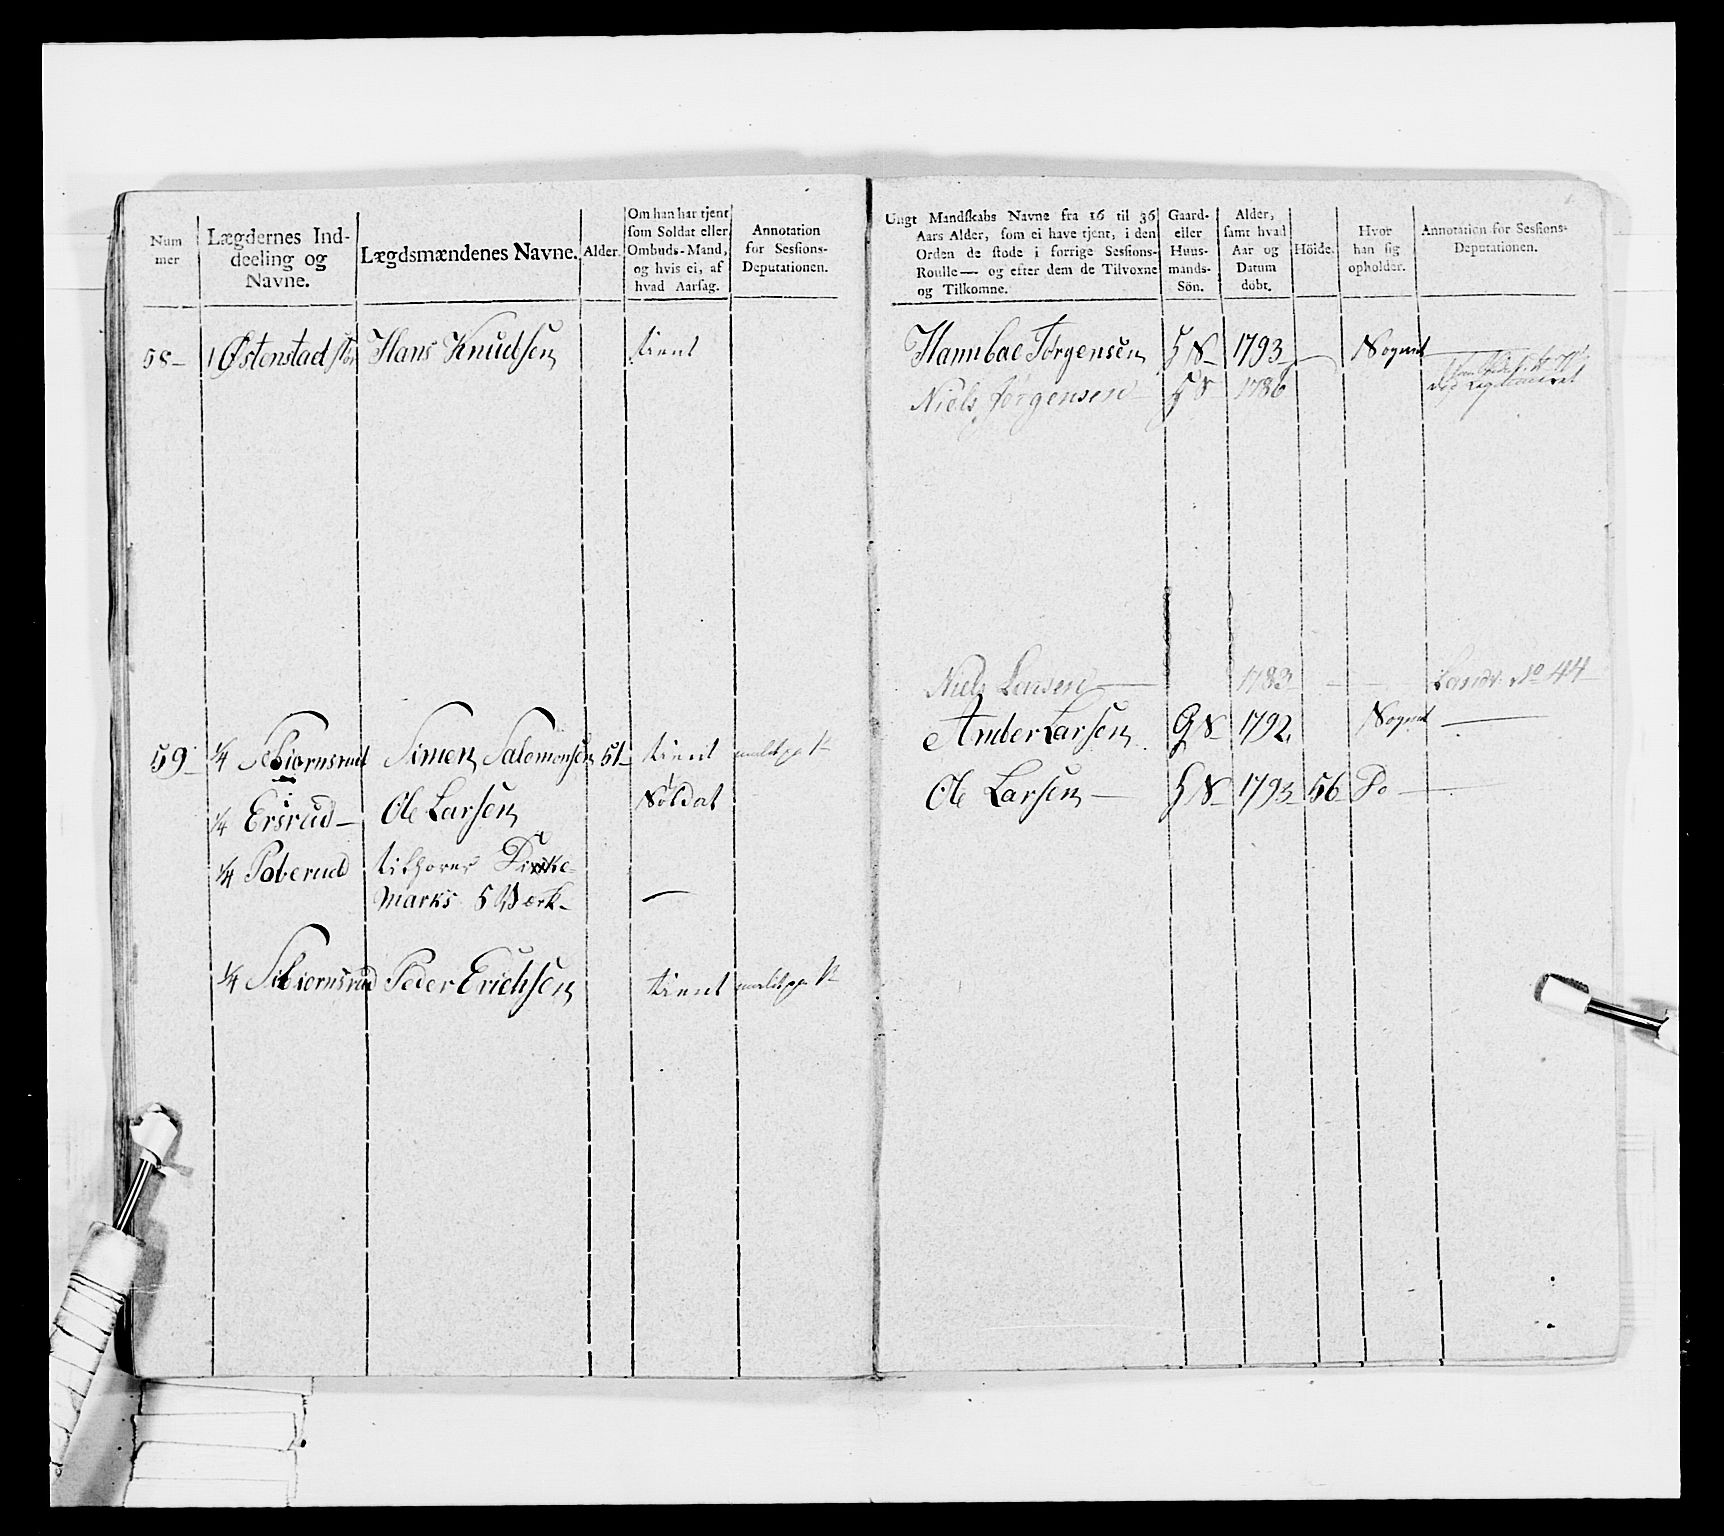 Num
mer
Lægdernes Ind-
deeling og
Navne.
Lægdsmændenes Navne.
Alder.
Om han har tjent
som Soldat eller
Ombuds-Mand,
og hvis ei, af
hvad Aarsag.
Annotation
for Sessions-
Deputationen.
58- 1 Østenstad stor Hans Knudsen tient
59- 1/4 Simen Salomonsen 51- tient
1/4 Ersrud- Ole Larsen Soldat
1/4 Poverud tilhører
Marks Værk-
1/4 Peder Erichsen tient
Ungt Mandskabs Navne fra 16 til 36
Aars Alder, som ei have tjent, i den
Orden de stode i forrige Sessions-
Roulle — og efter dem de Tilvoxne
og Tilkomne.
Gaard-
eller
Huus-
mands-
Sön.
Alder,
samt hvad
Aar og
Datum
döbt.
Höide.
Hvor
han sig
opholder.
Annotation for Sessions-
Deputationen.
Hannibal Jørgensen H S- 1793- Sognet
Niels Jørgensen- 1786
Niels Larsen 1783- Landv. No 44
Ander Larsen G S- 1792. Sognet —
Ole Larsen — H S- 1793- 56- Do —